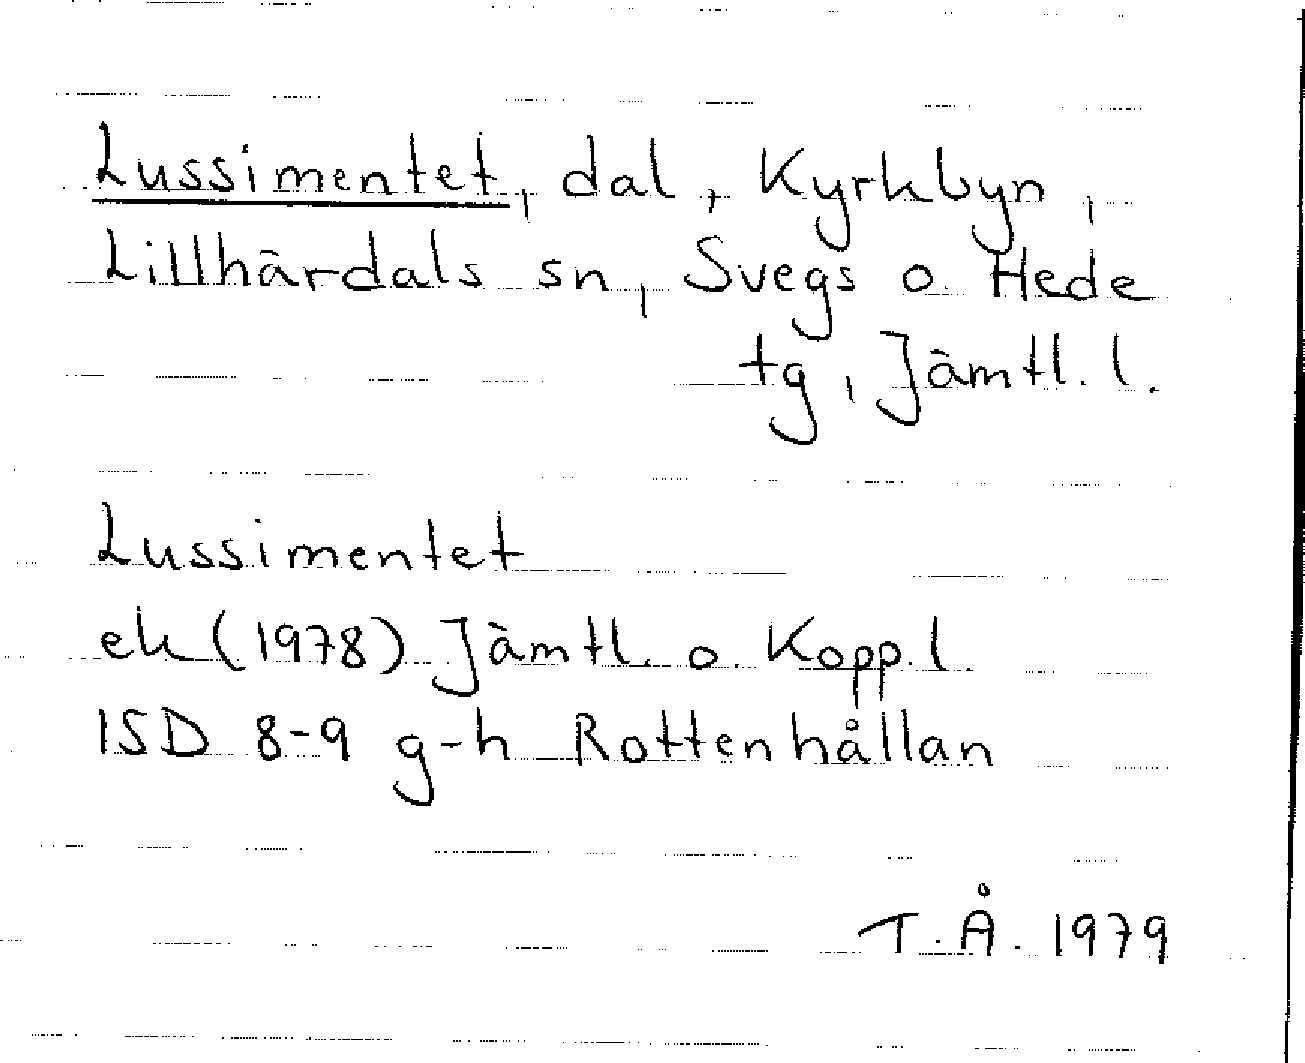 Lussimentet, dal, Kyrkbyn,
Lillhärdals sn, Svegs o Hede
tg, Jämtl. l.
Lussimentet
ek (1978) Jämtl. o. Kopp. l.
15D 8-9 g-h Rottenhållan
T.Å. 1979